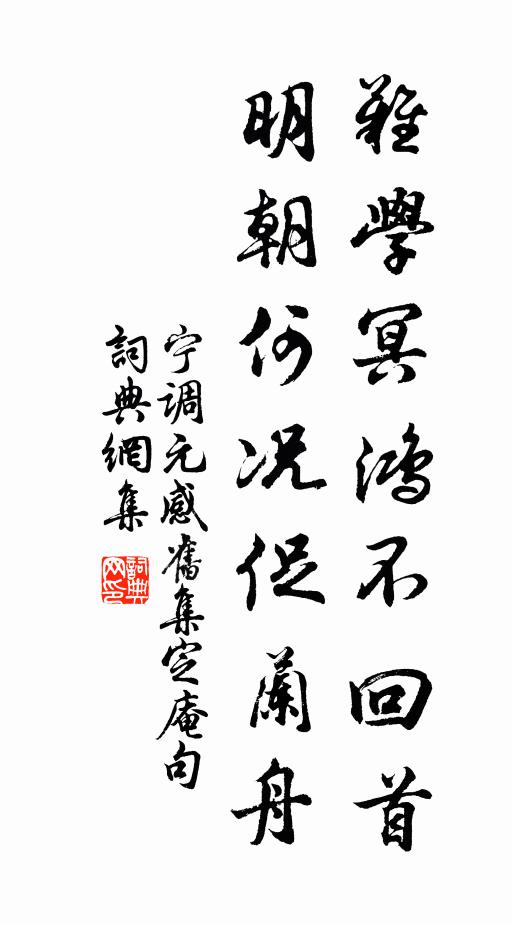 難學冥鴻不回首
明朝何況促蘭舟
宁调元感舊集定庵句
詞典網集
詞典
网印